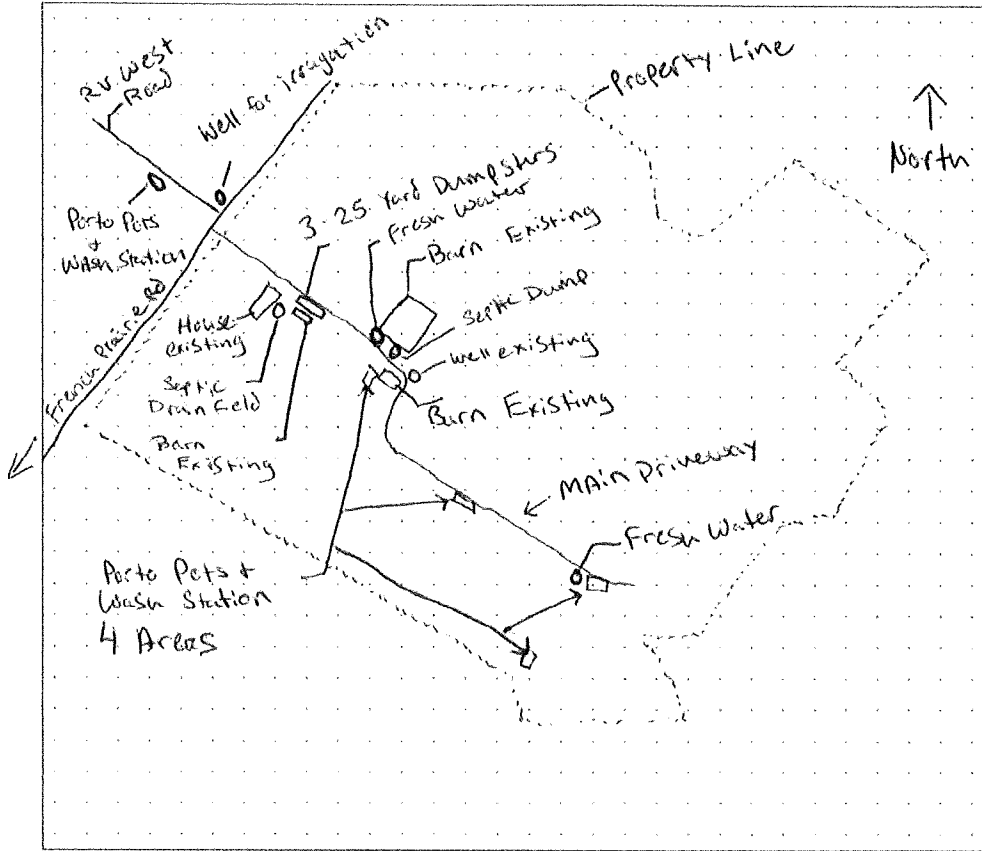 R.V. West
Road
Well for irragation
Property Line
North
Porto Pots
+
WAsh Station
3-25 Yard Dumpsters
Fresh Water
Barn Existing
Septic Dump
French Prairie Rd
House
existing
Well existing
Septic
Drain Field
Barn Existing
Barn
Existing
MAin Driveway
Fresh Water
Porto Pots +
Wash Station
4 Areas